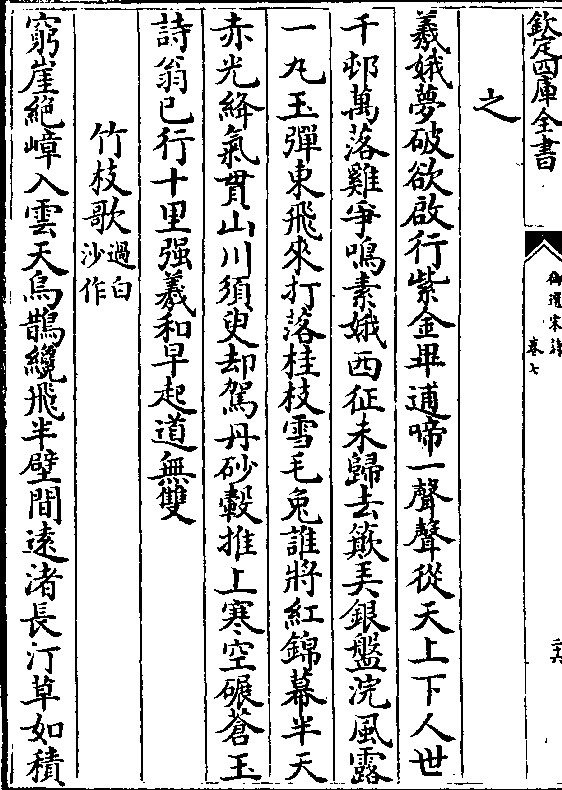 欽定四庫全書
御選宋詩
卷七
之
羲娥夢破欲啟行紫金畢逋啼一聲聲從天上下人世
千邨萬落雞爭鳴素娥西征未歸去簸弄銀盤浣風露
一丸玉彈東飛來打落桂枝雪毛兔誰將紅錦幕半天
赤光絳氣貫山川須臾却駕丹砂轂推上寒空碾蒼玉
詩翁已行十里强羲和早起道無雙
竹枝歌
過白
沙作
窮崖絕嶂入雲天烏鵲纔飛半壁間逺渚長汀草如積